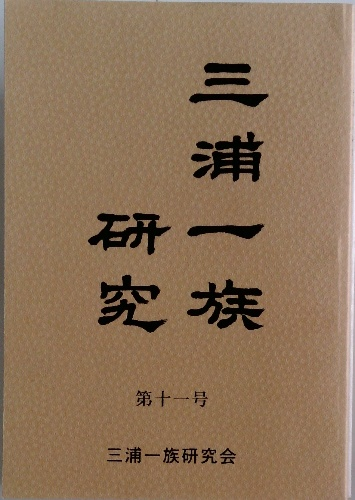 三浦一族
研究
第十一号
三浦一族研究会